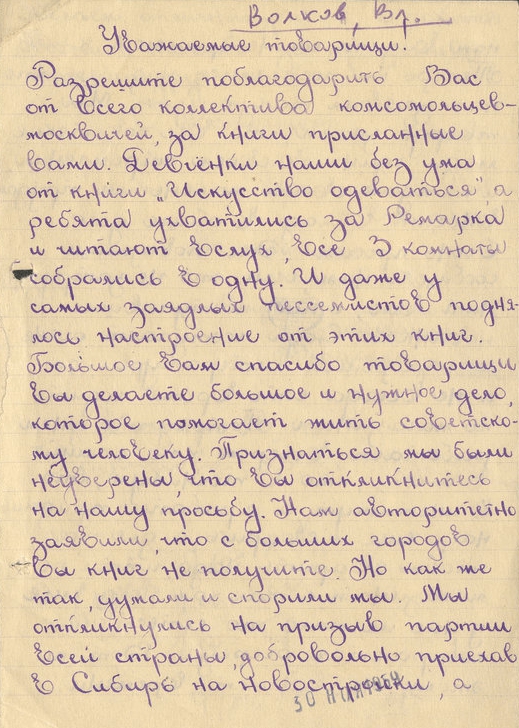 Волков, Вл.
Уважаемые товарищи.
Разрешите поблагодарить Вас
от всего коллектива комсомольцев-
москвичей, за книги присланные
вами. Девчёнки наши без ума
от книги „Искусство одеваться", а
ребята ухватились за Ремарка
и читают вслух, все 3 комнаты
собрались в одну. И даже у
самых заядлых пессемистов подня-
лось настроение от этих книг.
Большое вам спасибо товарищи
вы делаете большое и нужное дело,
которое помогает жить советско-
му человеку. Признаться мы были
неуверены, что вы откликнитесь
на нашу просьбу. Нам авторитетно
заявили, что с больших городов
вы книг не получите. Но как же
так, думали и спорили мы. Мы
откликнулись на призыв партии
всей страны, добровольно приехав
в Сибирь на новостройки, а
30